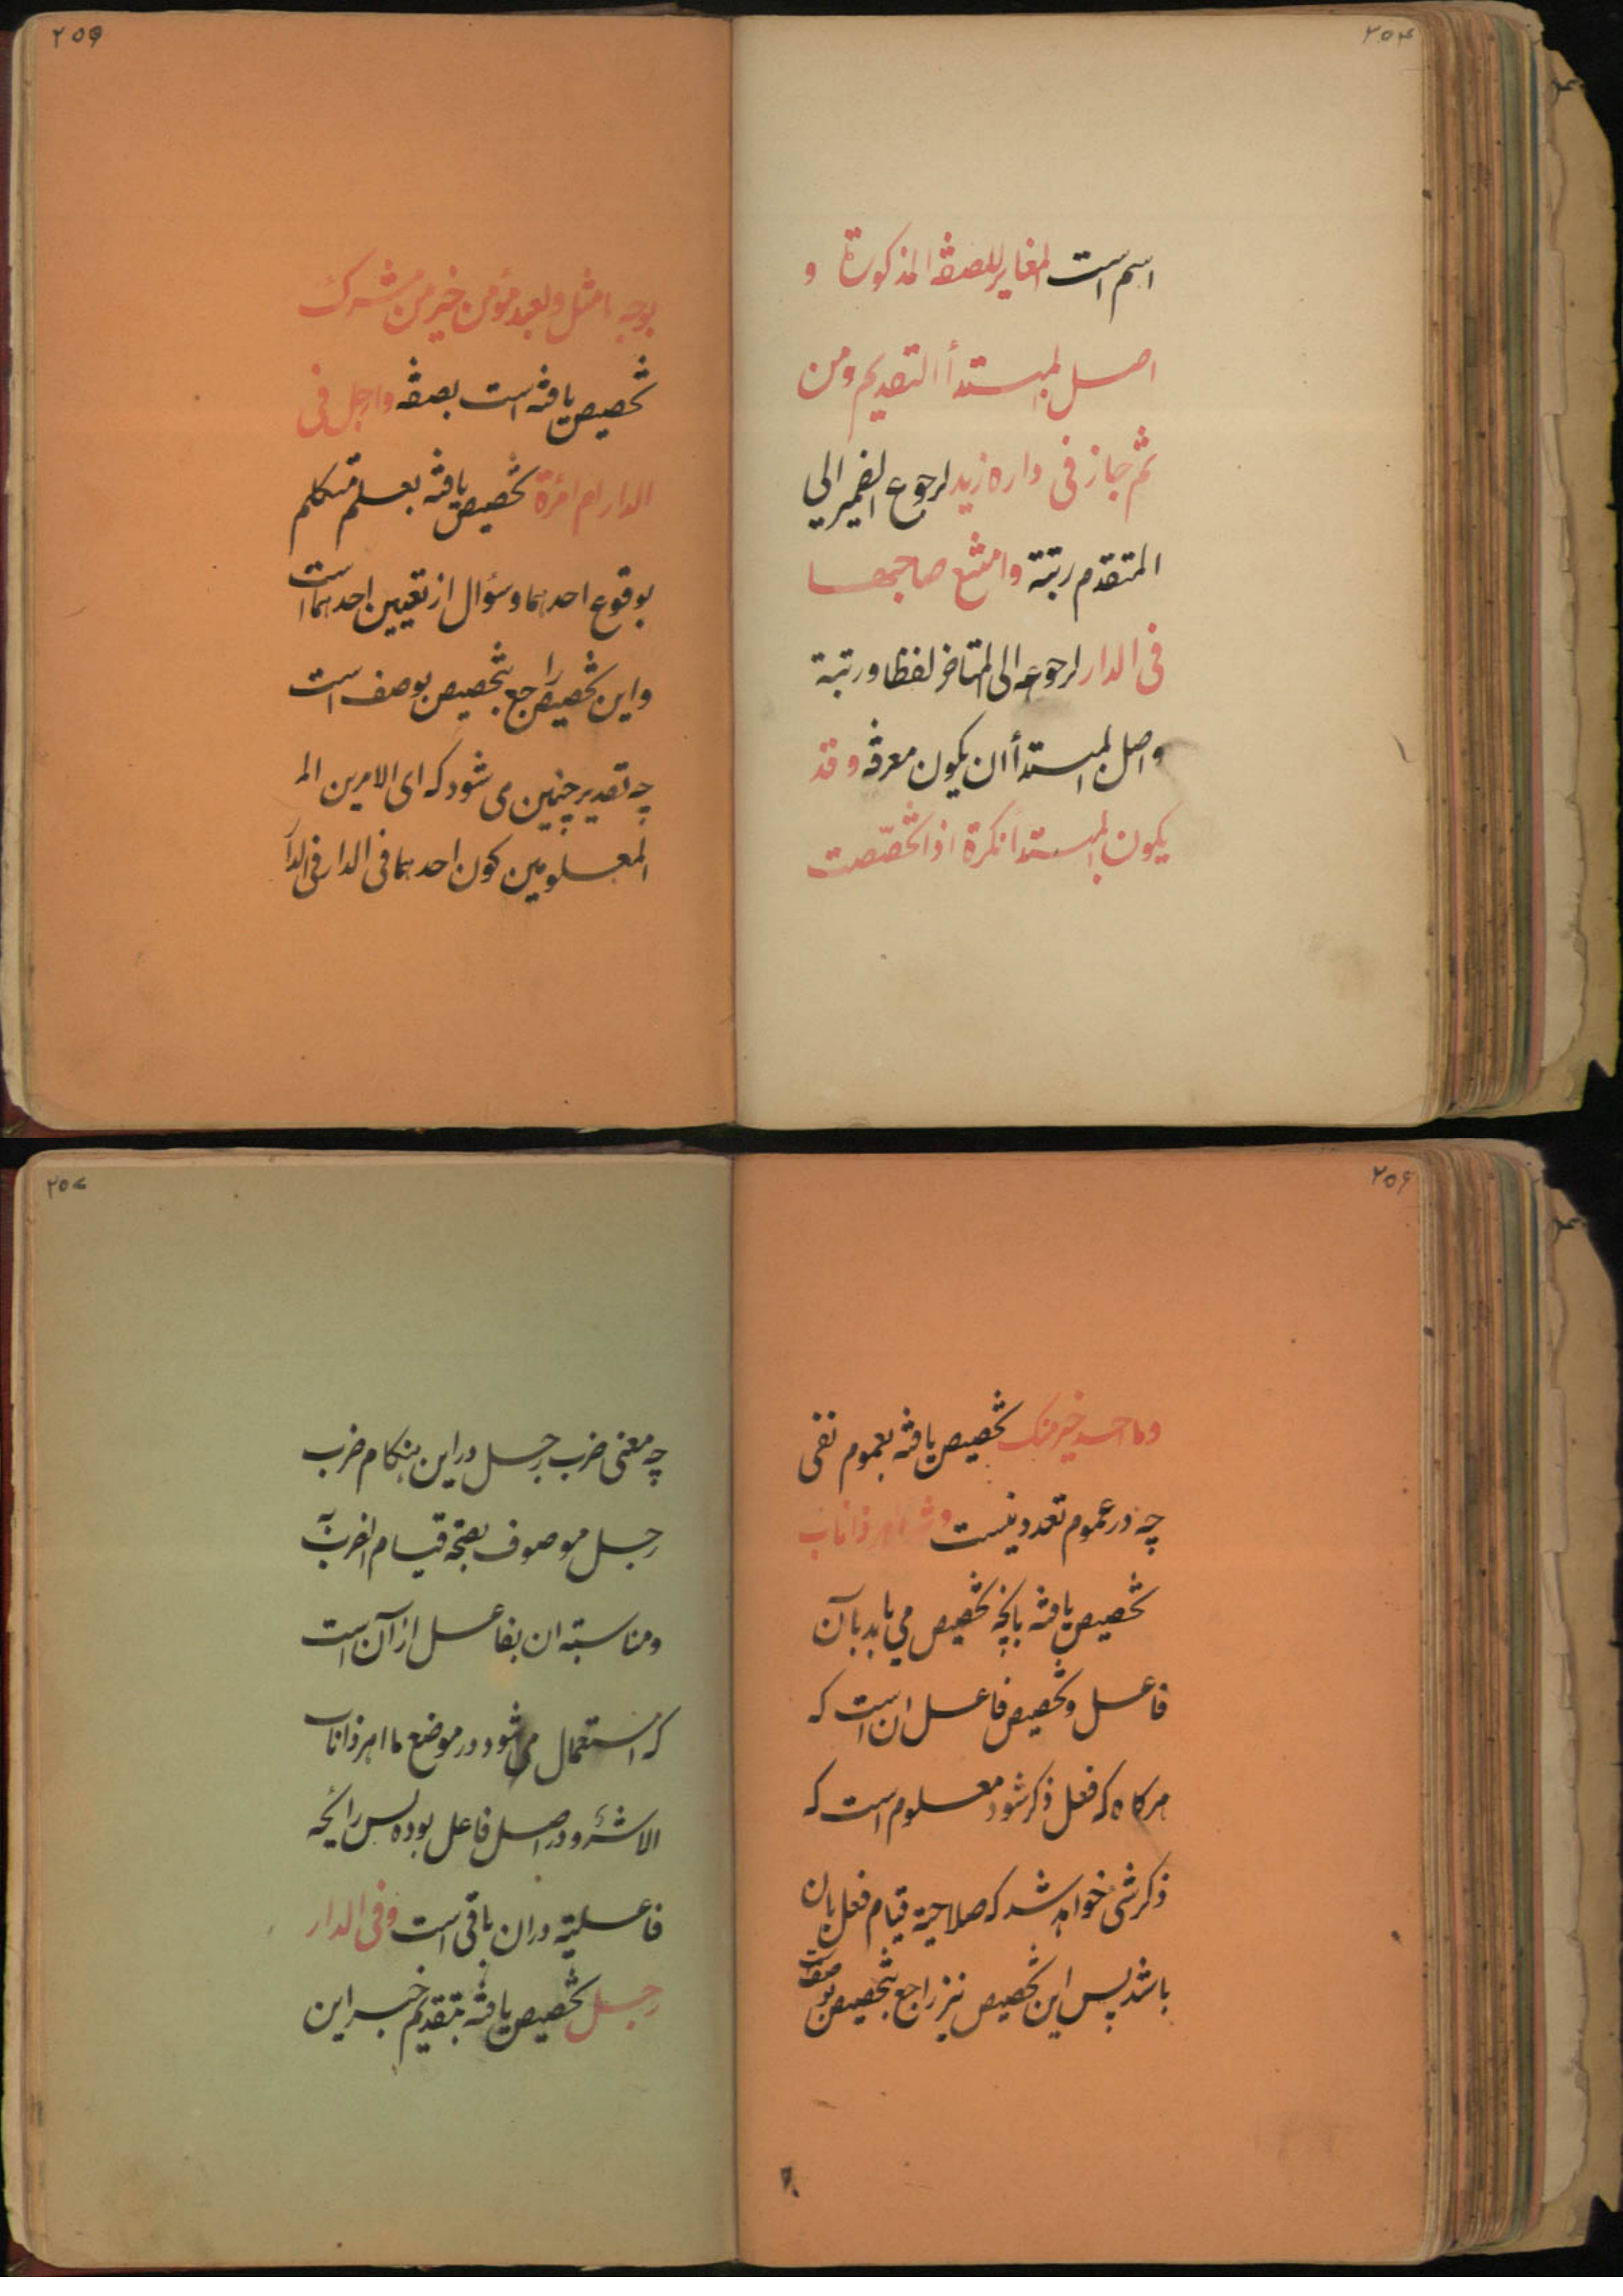 ۲۵۴
اسم است المغایر للصفة المذکورة و
اصل المبتدأ التقدیم ومن
ثم جاز فی داره زید لرجوع الضمیر الی
المتقدم رتبة وامتنع صاحبها
فی الدار لرجوعه الی المتاخر لفظا ورتبة
واصل المبتدأ ان یکون معرفة وقد
یکون المبتدا نکرة اذا تخصّصت
۲۵۵
بوجه ما مثل ولعبد مؤمن خیر من مشرک
تخصیص یافته است بصفة وارجل فی
الدار ام امرٔة تخصیص یافته بعلم متکلم
بوقوع احدهما وسؤال از تعیین احدهما است
واین تخصیص راجع بتخصیص بوصف است
چه تقدیر چنین می شود که ای الامرین الـ
المعلومین کون احدهما فی الدار فی الدآ
۲۵۶
وما احد خیر منک تخصیص یافته بعموم نفی
چه در عموم تعدد نیست وشر اهر ذا ناب
تخصیص یافته بانچه تخصیص می یابد بآن
فاعل وتخصیص فاعل ان است که
هرکاه که فعل ذکر شود معلوم است که
ذکر شئ خواهد شد که صلاحیة قیام فعل بان
باشد پس این تخصیص نیز راجع بتخصیص بوصفات
۲۵۷
چه معنی ضرب رجل در این هنکام ضرب
رجل موصوف بصحة قیام الضرب به
ومناسبته ان بفاعل از آن است
که استعمال می شود در موضع ما اهر ذا ناب
الا شرٌ و در اصل فاعل بوده پس رائحه
فاعلیته دران باقی است وفی الدار
رجل تخصیص یافته بتقدیم خبر این